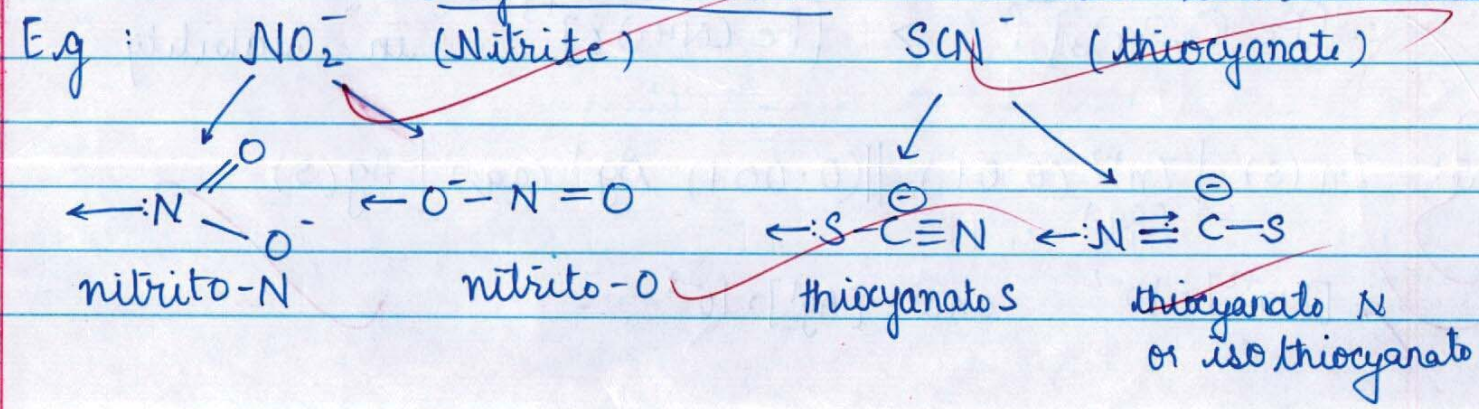 E.g : NO₂⁻ (Nitrite) SCN⁻ (thiocyanate)
O
←:N ←O⁻–N=O ←:S–C≡N ←:N≡C–S
O⁻ ⊖ ⊖
nitrito-N nitrito-O thiocyanato S thiocyanato N
or isothiocyanato